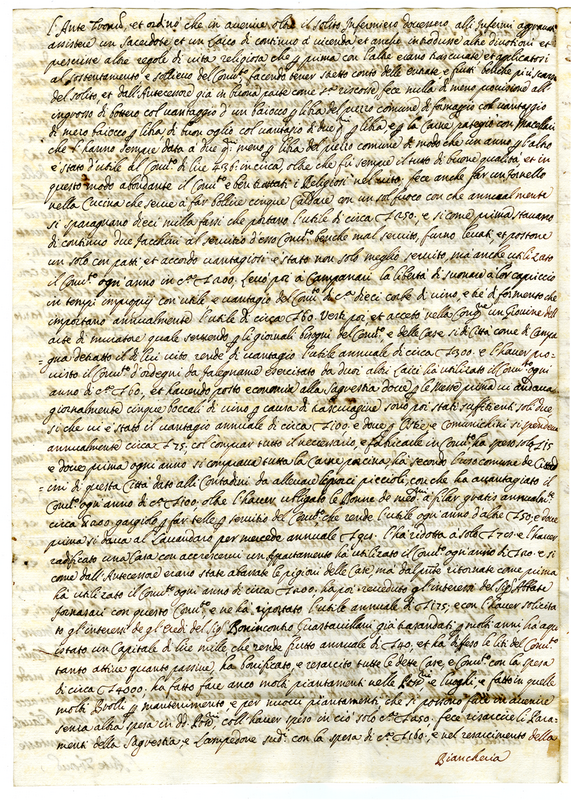 et ordinò che in avenire oltre il solito Infermiero dovessero alli Infermi
assistere un Sacerdote et un Laico di continuo a vicenda et anche introdusse altre divotioni et
altre regole di vita religiosa che prima con l'altre erano trascurate et
al sostentamento e sollievo del Conv.to facendo tener stretto conto delle entrate e frutti
del solito et dall'Antecessore già in buona parte come s.a riscosse fece nella di meno provisioni all'
ingrosso di botero col vantaggio d'un baiocco p libra del prezzo comune di formaggio con vantaggio
di mezo baiocco p libra di buon oglio col vantagio di due p libra e p la Carne pategiò con Macellari
che l'hanno sempre data a due meno p libra del prezzo comune di modo che un anno p l'altro
è stato d'utile al Conv.to di lire 436: in circa, oltre che fu sempre il tutto di buona qualità, et in
questo modo abondante il Conv.to e ben trattati i Religiosi nel vitto, fece anche far un fornello
nella Cucina che serve a far bollire cinque Caldare con un sol fuoco con che annualmente
si sparagnano dieci milla fassi che portano l'utile di circa £250, e si come prima stavano
di continuo due facchini al servitio d'esso Conv.to benche mal servito, furno levati, et postone
un solo con patti et accordo vantagiosi è stato non solo meglio servito, ma anche utilizato
il Conv.to ogni anno in c.a £200, levò poi a Campanari la libertà di suonare a lor capriccio
in tempi improprij con utile e vantagio del Conv.to di c.a dieci corbe di vino, e di formento che
importano annualmente l'utile di circa £60. Vestì poi et accettò nella un giovine dell'
arte di muratore quale servendo p li giornali bisogni del Conv.to e delle Case sì di Città come di Campa
=gna detratto il di lui vitto rende di vantagio l'utile annuale di circa £300. e l'haver pro=
visto il Conv.to d'ordegni da falegname esercitato da duoi altri laici ha utilizato il Conv.to ogni
anno di c.a £60, et havendo posto economia alla Sagrestia dove p le Messe prima vi andava
giornalmente cinque boccali di vino p causa di sono poi stati sufficienti soli due
si che vi è stato il vantagio annuale di circa £100. e dove p Ostie e Comunichini si spendeva
annualmente circa £75. col comprar tutto il necessario, e fabricarle in Conv.to ha speso solo £15
e dove prima ogni anno si comprava tutta la Carne porcina, ha secondo l'uso comune de Citta=
=ni di questa Città dato alla Contadini da allevare porci piccioli, con che ha avantagiato il
Conv.to ogni anno di c.a £100. oltre l'haver utilizato le Donne de med.mi a filar gratis annualm.te
circa £200. gargiolo p far telle p servitio del Conv.to che rende l'utile ogni anno d'altre £50, e dove
prima si dava al Lavandaro per mercede annuale £91: l'ha ridotta a sole £70: e l'haver
redificato una Casa con accrescervi un Apartamento ha utilizato il Conv.to ogni anno di £20. e si
come dall'Antecessore erano state abassate le pigioni delle Case ma dal ritornate come prima
ha utilizato il Conv.to ogni anno di circa £200. ha poi reveduto gl'interessi del Sig.r Abbate
Fornasari con questo Conv.to e ne ha riportato l'utile annuale di £175; e con l'haver solicita=
to gl'interessi de gl'Eredi del Sig.r Bonincontro Guastavillani già tralandati p molti anni ha aqui
=stato un Capitale di lire mille che rende frutto annuale di £40. et ha difeso le liti del Conv.to
tanto attive quanto passive, ha bonificato, e resarcito tutte le dette Case, e Conv.to con la spesa
di circa £4000. ha fatto fare anco molti piantamenti nelle e luoghi, e fatto in quelle
molti p mantenimento, e per nuovi piantamenti, che si possono fare in avenire
senza altra spesa in coll'haver speso in ciò solo c.a £250. fece risarcire li Para=
menti della Sagrestia e con la spesa di c.a £160; e nel resarcimento della
Biancheria